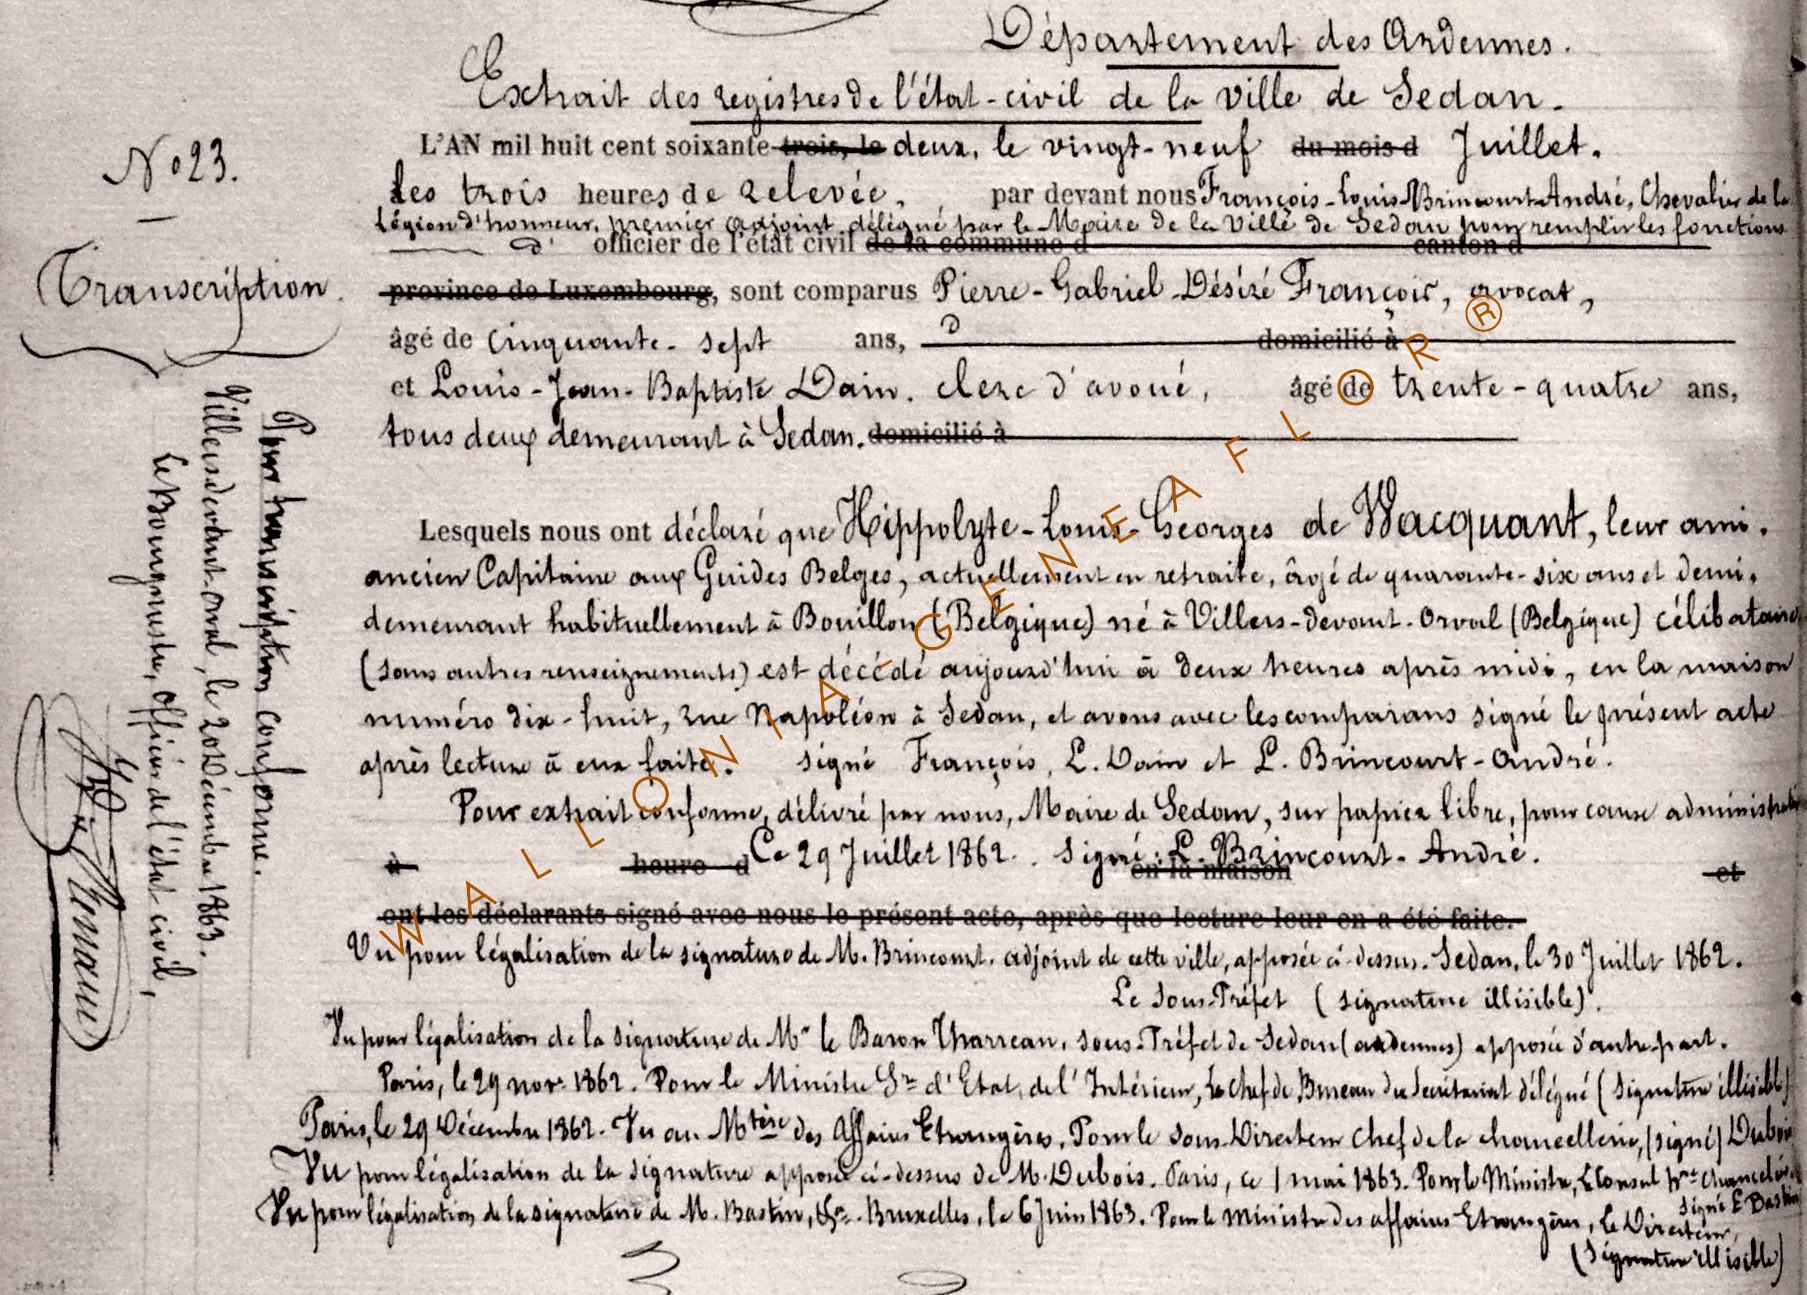 Département des Ardennes.
Extrait des registres de l'état-civil de la Ville de Sedan.
No 23.
Transcription.
L'AN mil huit cent soixante trois, le deux, le vingt-neuf du mois d Juillet.
les trois heures de relevée, par devant nous François-Louis Brincourt-André, Chevalier de la
Légion d'honneur, premier adjoint délégué par le Maire de la Ville de Sedan pour remplir les fonctions
d' officier de l'état civil de la commune d canton d
province de Luxembourg, sont comparus Pierre-Gabriel-Désiré François, avocat,
âgé de cinquante-sept ans, d domicilié à
et Louis-Jean-Baptiste Dain, clerc d'avoué, âgé de trente-quatre ans,
tous deux demeurant à Sedan. domicilié à
Lesquels nous ont déclaré que Hippolyte-Louis-Georges de Wacquant, leur ami.
ancien Capitaine aux Guides Belges, actuellement en retraite, âgé de quarante-six ans et demi,
demeurant habituellement à Bouillon (Belgique) né à Villers-devant-Orval (Belgique) célibataire
(sans autres renseignements) est décédé aujourd'hui à deux heures après midi, en la maison
numéro dix-huit, rue Napoléon à Sedan, et avons avec les comparans signé le présent acte
après lecture à eux faite. signé François, L. Dain et L. Brincourt-André.
Pour extrait conforme, délivré par nous, Maire de Sedan, sur papier libre, pour cause administrative
à heure d Ce 29 Juillet 1862. Signé: L. Brincourt-André. en la maison et
ont les déclarants signé avec nous le présent acte, après que lecture leur en a été faite.
Vu pour légalisation de la signature de M. Brincourt, adjoint de cette ville, apposée ci-dessus. Sedan, le 30 Juillet 1862.
Le Sous-Préfet (signature illisible).
Vu pour légalisation de la signature de Mr le Baron Tharreau, Sous-Préfet de Sedan (ardennes) apposée d'autre part.
Paris, le 29 nov. 1862. Pour le Ministre Sre d'Etat, de l'Intérieur, Le Chef de Bureau du Secrétariat délégué (Signature illisible)
Paris, le 29 Décembre 1862. Vu au Mtère des Affaires Etrangères, Pour le Sous-Directeur Chef de la Chancellerie, (signé) Dubois
Vu pour légalisation de la signature apposée ci-dessus de M. Dubois. Paris, ce 1 mai 1863. Pour le Ministre, Le Consul Chancelier,
signé E Bastin
Vu pour légalisation de la signature de M. Bastin, Bruxelles, le 6 Juin 1863. Pour le ministre des affaires Etrangères, le Directeur,
(Signature illisible)
Pour transcription conforme.
Villers-devant-Orval, le 20 Décembre 1863.
Le Bourgmestre, officier de l'état-civil,
WALLONIA-GENEAFLOR®